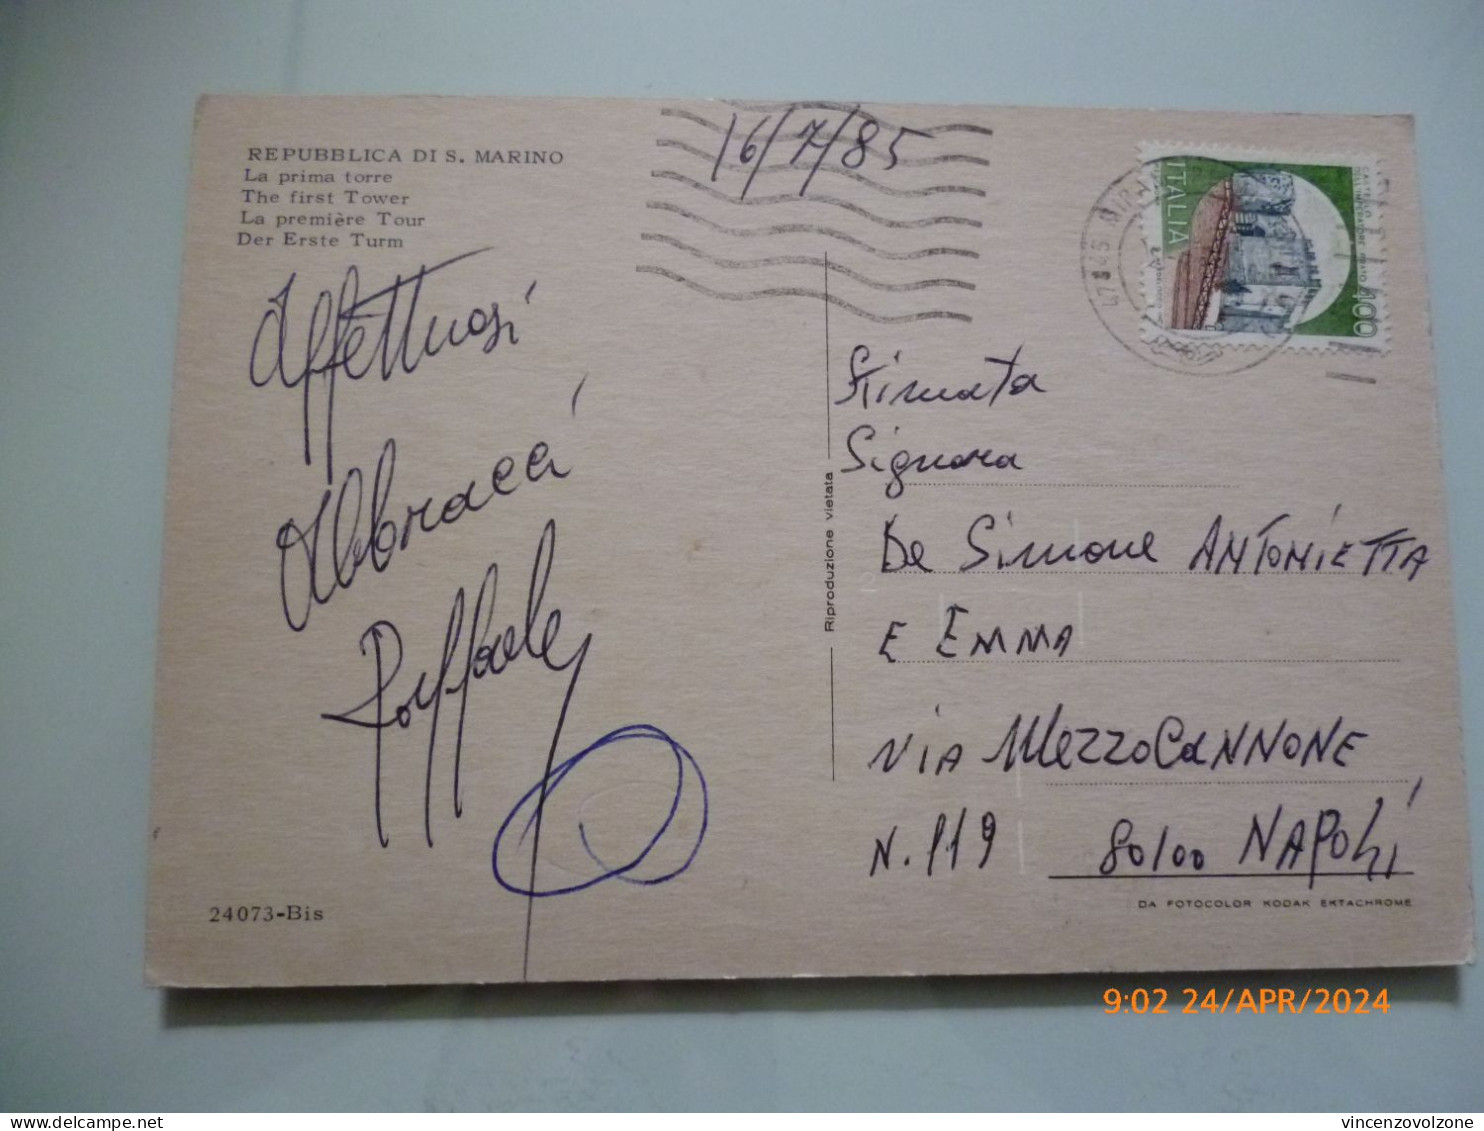 REPUBBLICA DI S. MARINO
La prima torre
The first Tower
La première Tour
Der Erste Turm
16/7/85
ITALIA
400
Affettuosi
Abbracci
Raffaele
Stimata
Signora
De Simone ANTONIETTA
E EMMA
VIA MEZZOCANNONE
N. 119 80100 NAPOLI
Riproduzione vietata
24073-Bis
DA FOTOCOLOR KODAK EKTACHROME
9:02 24/APR/2024
vincenzovolzone